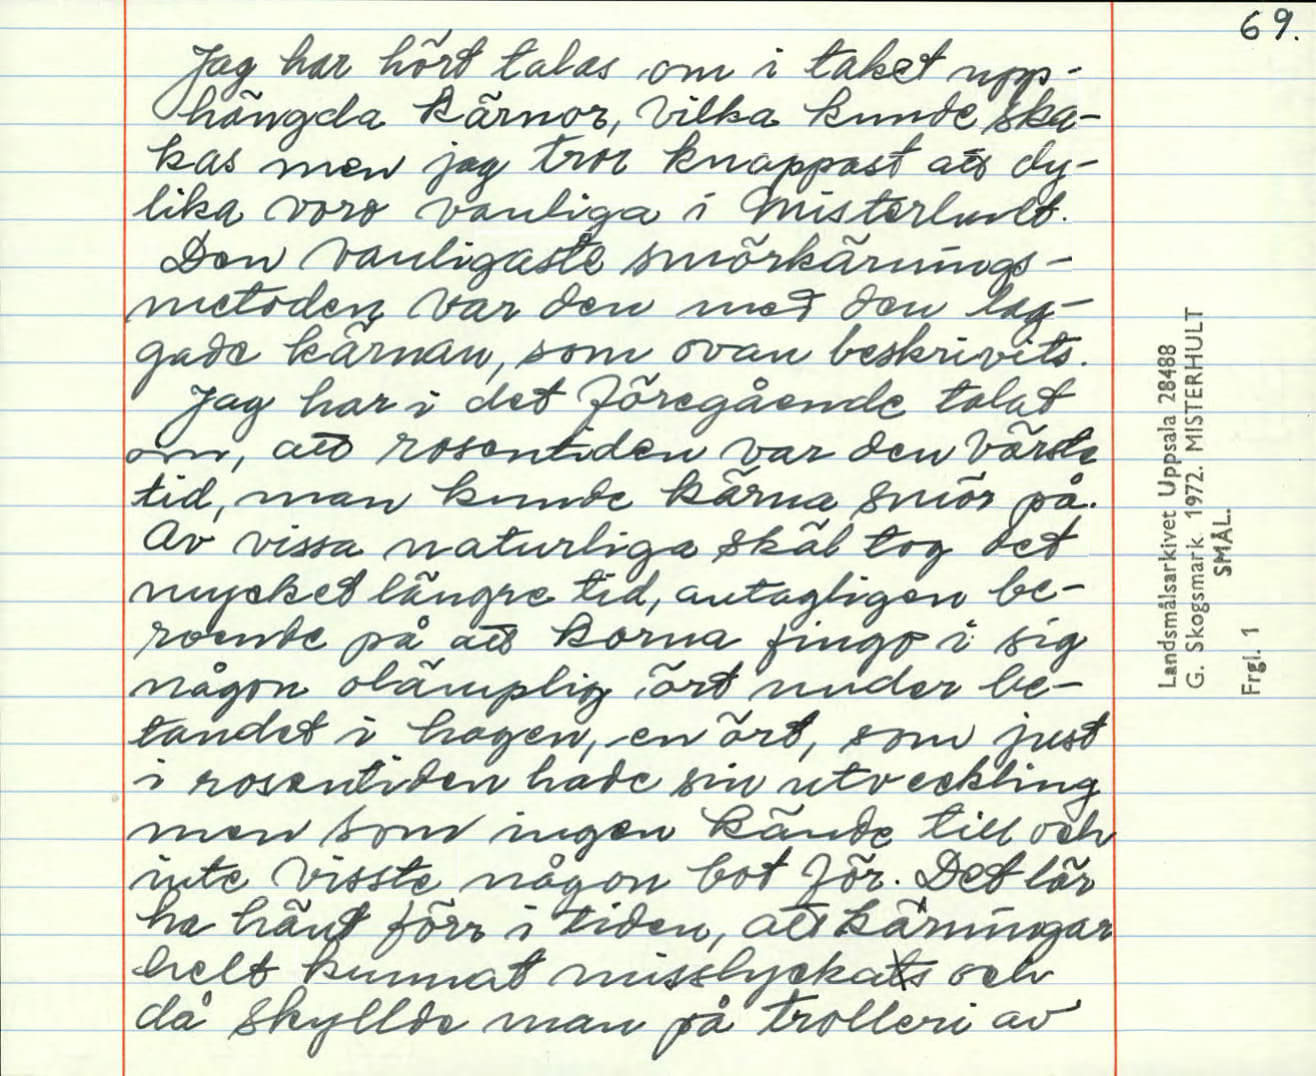 69.
Jag har hört talas om i taket upp-
hängda kärnor, vilka kunde ska-
kas men jag tror knappast att dy-
lika voro vanliga i Misterhult.
Den vanligaste smörkärnings-
metoden var den med den lag-
gade kärnan, som ovan beskrivits.
Jag har i det föregående talat
om, att rosentiden var den värste
tid, man kunde kärna smör på.
Av vissa naturliga skäl tog det
mycket längre tid, antagligen be-
roende på att korna fingo i sig
någon olämplig ört under be-
tandet i hagen, en ört, som just
i rosentiden hade sin utveckling
men som ingen kände till och
inte visste någon bot för. Det lär
ha hänt förr i tiden, att kärningar
helt kunnat misslyckats och
då skyllde man på trolleri av
Landsmålsarkivet Uppsala 28488
G. Skogsmark. 1972. MISTERHULT
SMÅL.
Frgl. 1